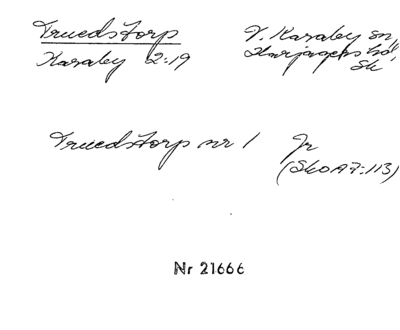 Truedstorp
V. Karaby sn,
Karaby 2:19
Harjagers hd,
Sk
Truedstorp nr 1
Jr
(Sko A7:113)
Nr 21666